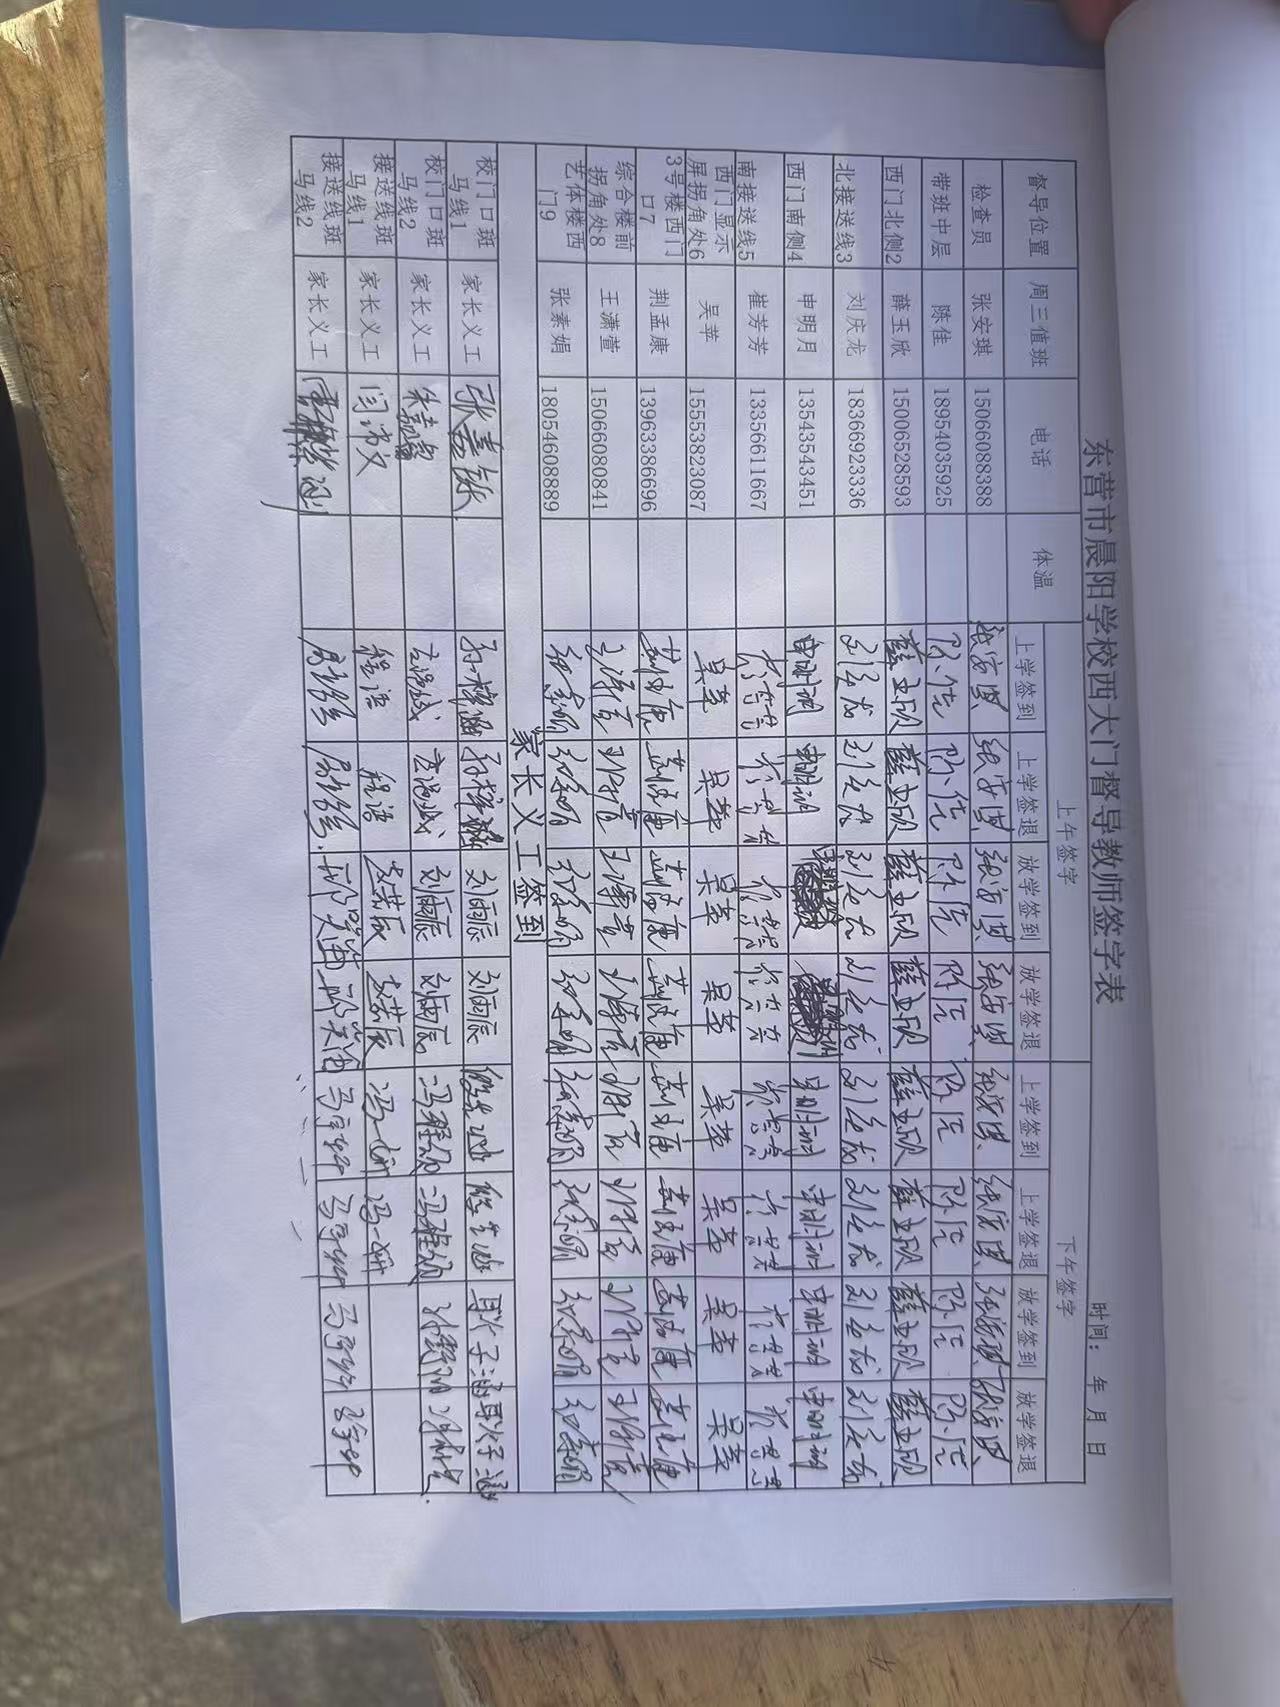 东营市晨阳学校西大门督导教师签字表
时间： 年 月 日
督导位置 周三值班 电话 体温 上午签字 下午签字
上学签到 上学签退 放学签到 放学签退 上学签到 上学签退 放学签到 放学签退
检查员 张安琪 15066088388 张安琪 张安琪 张安琪 张安琪 张安琪 张安琪 张安琪 张安琪
带班中层 陈佳 18954035925 陈佳 陈佳 陈佳 陈佳 陈佳 陈佳 陈佳 陈佳
西门北侧2 薛玉欣 15006528593 薛玉欣 薛玉欣 薛玉欣 薛玉欣 薛玉欣 薛玉欣 薛玉欣 薛玉欣
北接送线3 刘庆龙 18366923336 刘庆龙 刘庆龙 刘庆龙 刘庆龙 刘庆龙 刘庆龙 刘庆龙 刘庆龙
西门南侧4 申明月 13543543451 申明月 申明月 申明月 申明月 申明月 申明月
南接送线5 崔芳芳 13356611667 崔芳芳 崔芳芳 崔芳芳 崔芳芳 崔芳芳 崔芳芳 崔芳芳 崔芳芳
西门显示
屏拐角处6 吴苹 15553823087 吴苹 吴苹 吴苹 吴苹 吴苹 吴苹 吴苹 吴苹
3号楼西门
口7 荆孟康 13963386696 荆孟康 荆孟康 荆孟康 荆孟康 荆孟康 荆孟康 荆孟康 荆孟康
综合楼前
拐角处8 王潇萱 15066080841 王潇萱 王潇萱 王潇萱 王潇萱 王潇萱 王潇萱 王潇萱 王潇萱
艺体楼西
门9 张素娟 18054608889 张素娟 张素娟 张素娟 张素娟 张素娟 张素娟 张素娟 张素娟
家长义工签到
校门口斑
马线1 家长义工 刘雨辰 刘雨辰
校门口斑
马线2 家长义工 刘雨辰 刘雨辰
接送线斑
马线1 家长义工 闫沛文 程语 程语
接送线斑
马线2 家长义工